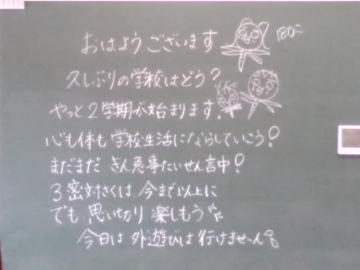 おはようございます
久しぶりの学校はどう?
やっと2学期が始まります。
心も体も学校生活にならしていこう!
まだまだ きん急事たいせん言中!
3密対さくは 今まで以上に
でも、思い切り 楽しもう
今日は 外遊びは 行けませ〜ん